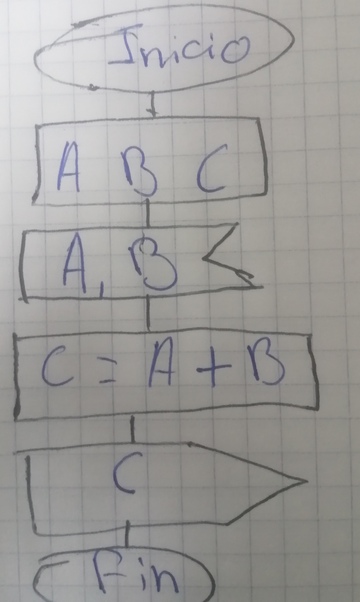 Inicio
A B C
A, B
C = A + B
C
Fin